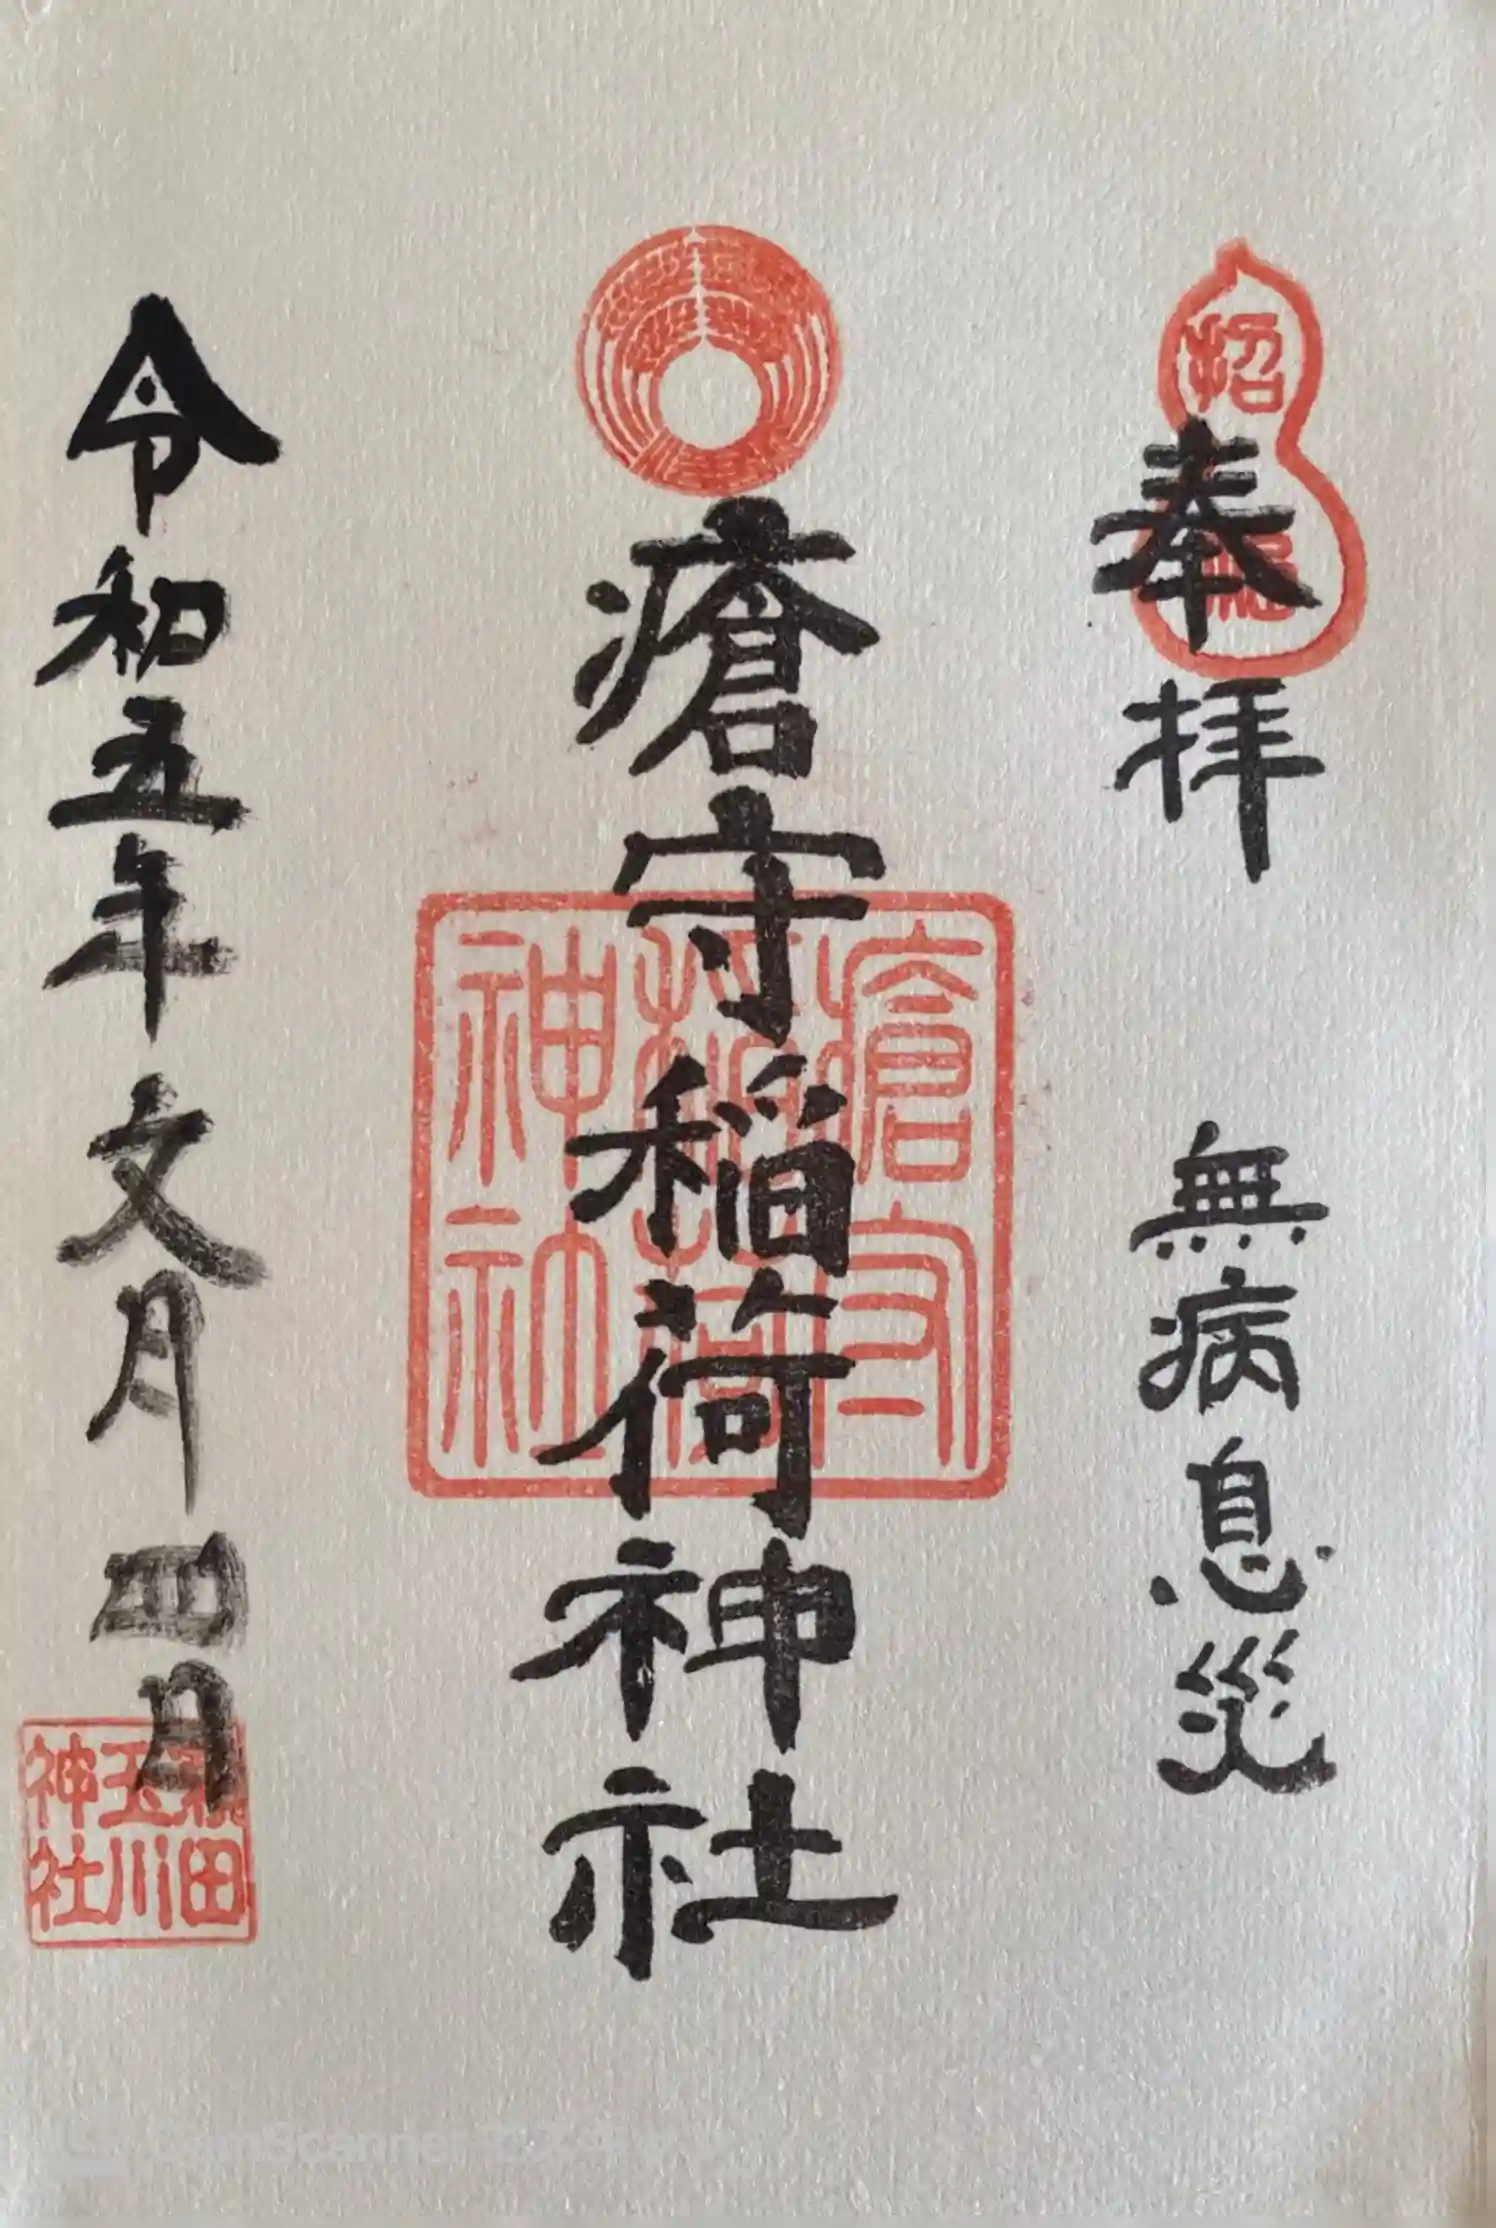 奉拝 無病息災
招福
瘡守稲荷神社
瘡守稲荷神社
令和五年文月四日
萩田玉川神社
CamScanner